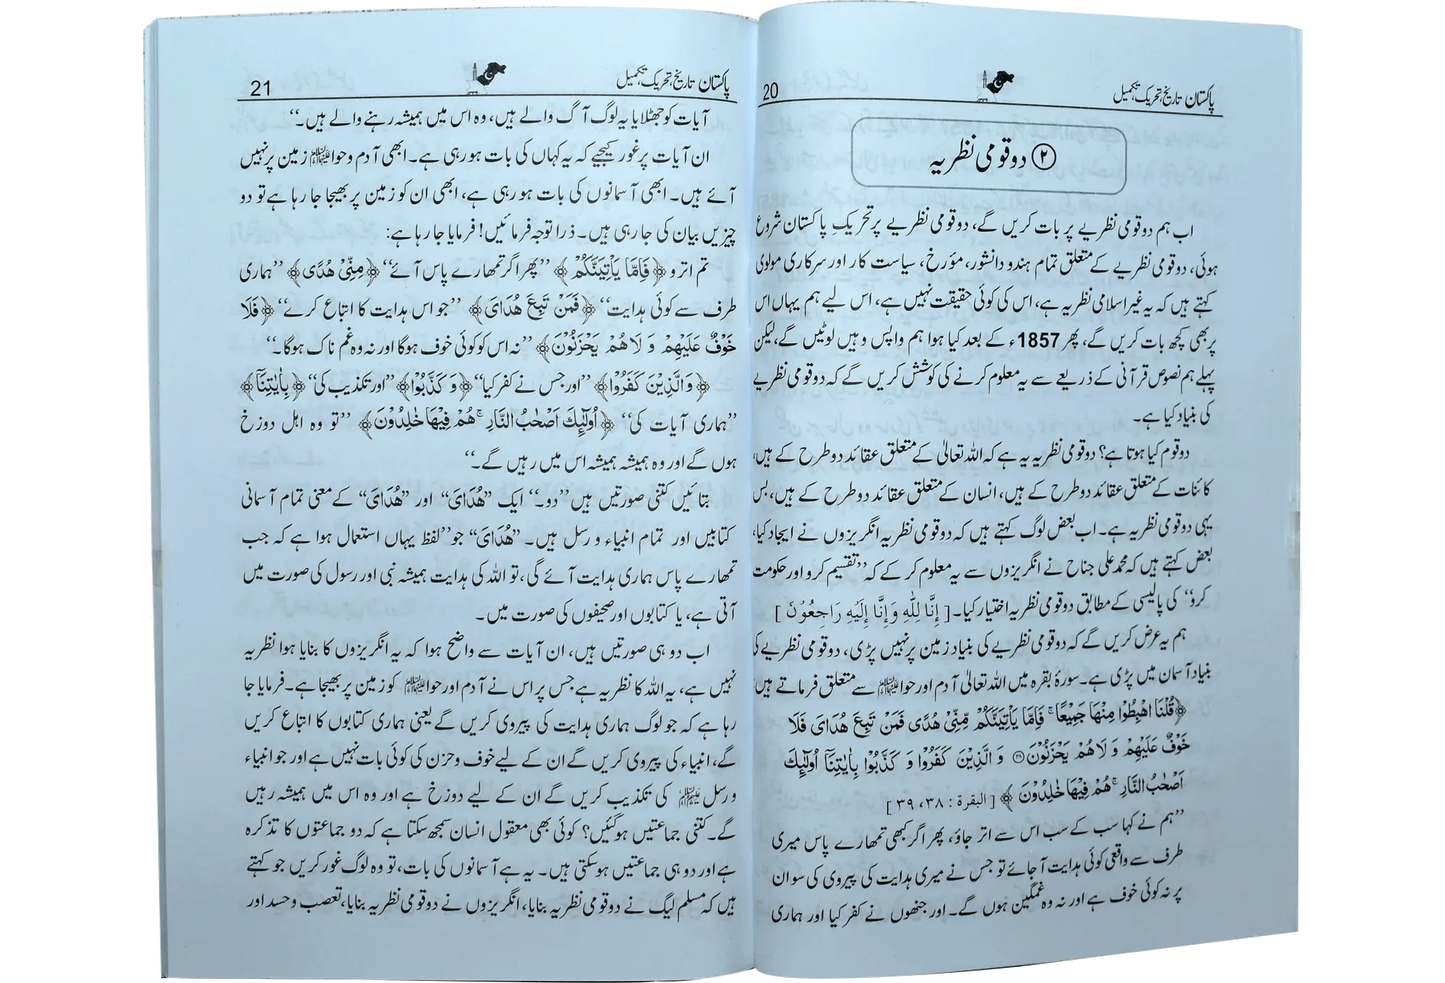 پاکستان تاریخ، تحریک، تکمیل
20
۲ دو قومی نظریہ
اب ہم دوقومی نظریے پر بات کریں گے، دوقومی نظریے پر تحریک پاکستان شروع
ہوئی، دوقومی نظریے کے متعلق تمام ہندو دانشور، مؤرخ، سیاست کار اور سرکاری مولوی
کہتے ہیں کہ یہ غیر اسلامی نظریہ ہے، اس کی کوئی حقیقت نہیں ہے، اس لیے ہم یہاں اس
پر بھی کچھ بات کریں گے، پھر 1857ء کے بعد کیا ہوا ہم واپس وہیں لوٹیں گے، لیکن
پہلے ہم نصوص قرآنی کے ذریعے سے یہ معلوم کرنے کی کوشش کریں گے کہ دوقومی نظریے
کی بنیاد کیا ہے۔
دو قوم کیا ہوتا ہے؟ دوقومی نظریہ یہ ہے کہ اللہ تعالیٰ کے متعلق عقائد دو طرح کے ہیں،
کائنات کے متعلق عقائد دو طرح کے ہیں، انسان کے متعلق عقائد دو طرح کے ہیں، بس
یہی دوقومی نظریہ ہے۔ اب بعض لوگ کہتے ہیں کہ دوقومی نظریہ انگریزوں نے ایجاد کیا،
بعض کہتے ہیں کہ محمد علی جناح نے انگریزوں سے یہ معلوم کر کے کہ ’’تقسیم کرو اور حکومت
کرو‘‘ کی پالیسی کے مطابق دوقومی نظریہ اختیار کیا۔ [ إِنَّا لِلّٰهِ وَإِنَّا إِلَيْهِ رَاجِعُوْنَ ]
ہم یہ عرض کریں گے کہ دوقومی نظریے کی بنیاد زمین پر نہیں پڑی، دوقومی نظریے کی
بنیاد آسمان میں پڑی ہے۔ سورۂ بقرہ میں اللہ تعالیٰ آدم اور حوا علیہما السلام سے متعلق فرماتے ہیں:
﴿قُلْنَا اهْبِطُوْا مِنْهَا جَمِيْعًا ۚ فَاِمَّا يَاْتِيَنَّكُمْ مِّنِّيْ هُدًى فَمَنْ تَبِعَ هُدَايَ فَلَا
خَوْفٌ عَلَيْهِمْ وَ لَا هُمْ يَحْزَنُوْنَ ۳۸ وَ الَّذِيْنَ كَفَرُوْا وَ كَذَّبُوْا بِاٰيٰتِنَاۤ اُولٰٓىِٕكَ
اَصْحٰبُ النَّارِ ۚ هُمْ فِيْهَا خٰلِدُوْنَ﴾ [البقرة : ۳۸، ۳۹]
’’ہم نے کہا سب کے سب اس سے اتر جاؤ، پھر اگر کبھی تمھارے پاس میری
طرف سے واقعی کوئی ہدایت آجائے تو جس نے میری ہدایت کی پیروی کی سو ان
پر نہ کوئی خوف ہے اور نہ وہ غمگین ہوں گے۔ اور جنھوں نے کفر کیا اور ہماری
پاکستان تاریخ، تحریک، تکمیل
21
آیات کو جھٹلایا یہ لوگ آگ والے ہیں، وہ اس میں ہمیشہ رہنے والے ہیں۔‘‘
ان آیات پر غور کیجیے کہ یہ کہاں کی بات ہو رہی ہے۔ ابھی آدم و حوا علیہما السلام زمین پر نہیں
آئے ہیں۔ ابھی آسمانوں کی بات ہو رہی ہے، ابھی ان کو زمین پر بھیجا جا رہا ہے تو دو
چیزیں بیان کی جارہی ہیں۔ ذرا توجہ فرمائیں! فرمایا جا رہا ہے:
تم اترو ﴿فَاِمَّا يَاْتِيَنَّكُمْ﴾ ’’پھر اگر تمھارے پاس آئے‘‘ ﴿مِنِّيْ هُدًى﴾ ’’ہماری
طرف سے کوئی ہدایت‘‘ ﴿فَمَنْ تَبِعَ هُدَايَ﴾ ’’جو اس ہدایت کا اتباع کرے‘‘ ﴿فَلَا
خَوْفٌ عَلَيْهِمْ وَ لَا هُمْ يَحْزَنُوْنَ﴾ ’’نہ اس کو کوئی خوف ہوگا اور نہ وہ غم ناک ہوگا۔‘‘
﴿وَ الَّذِيْنَ كَفَرُوْا﴾ ’’اور جس نے کفر کیا‘‘ ﴿وَ كَذَّبُوْا﴾ ’’اور تکذیب کی‘‘ ﴿بِاٰيٰتِنَاۤ﴾
’’ہماری آیات کی‘‘ ﴿اُولٰٓىِٕكَ اَصْحٰبُ النَّارِ ۚ هُمْ فِيْهَا خٰلِدُوْنَ﴾ ’’تو وہ اہل دوزخ
ہوں گے اور وہ ہمیشہ ہمیشہ اس میں رہیں گے۔‘‘
بتائیں کتنی صورتیں ہیں ’’دو۔‘‘ ایک ’’هُدَايَ‘‘ اور ’’هُدَايَ‘‘ کے معنی تمام آسمانی
کتابیں اور تمام انبیاء و رسل ہیں۔ ’’هُدَايَ‘‘ جو ’’لفظ یہاں استعمال ہوا ہے کہ جب
تمھارے پاس ہماری ہدایت آئے گی، تو اللہ کی ہدایت ہمیشہ نبی اور رسول کی صورت میں
آتی ہے، یا کتابوں اور صحیفوں کی صورت میں۔
اب دو ہی صورتیں ہیں، ان آیات سے واضح ہوا کہ یہ انگریزوں کا بنایا ہوا نظریہ
نہیں ہے، یہ اللہ کا نظریہ ہے جس پر اس نے آدم اور حوا علیہما السلام کو زمین پر بھیجا ہے۔ فرمایا جا
رہا ہے کہ جو لوگ ہماری ہدایت کی پیروی کریں گے یعنی ہماری کتابوں کا اتباع کریں
گے، انبیاء کی پیروی کریں گے ان کے لیے خوف و حزن کی کوئی بات نہیں ہے اور جو انبیاء
و رسل علیہم السلام کی تکذیب کریں گے ان کے لیے دوزخ ہے اور وہ اس میں ہمیشہ رہیں
گے۔ کتنی جماعتیں ہوگئیں؟ کوئی بھی معقول انسان سمجھ سکتا ہے کہ دو جماعتوں کا تذکرہ
ہے اور دو ہی جماعتیں ہوسکتی ہیں۔ یہ ہے آسمانوں کی بات، تو وہ لوگ غور کریں جو کہتے
ہیں کہ مسلم لیگ نے دوقومی نظریہ بنایا، انگریزوں نے دوقومی نظریہ بنایا، تعصب و حسد اور